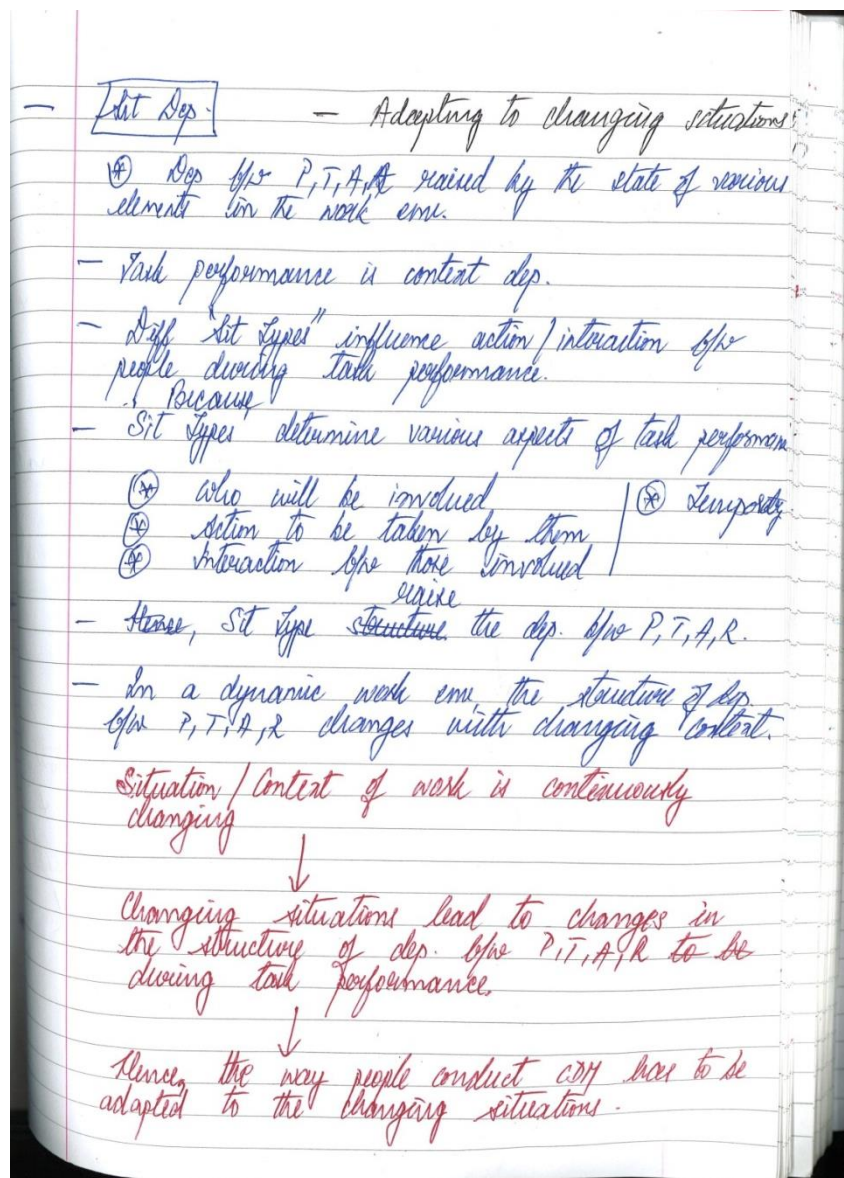 — Sit Dep. — Adapting to changing situations
* Dep b/w P, T, A, R raised by the state of various
elements in the work env.
— Task performance is context dep.
— Diff "Sit Types" influence action / interaction b/w
people during task performance.
Because
— Sit Types determine various aspects of task performan
* Who will be involved
* Action to be taken by them
* Interaction b/w those involved
* Temporality
raise
— Hence, Sit Type structure the dep. b/w P, T, A, R.
— In a dynamic work env, the structure of dep.
b/w P, T, A, R changes with changing context.
Situation / Context of work is continuously
changing
↓
Changing situations lead to changes in
the structure of dep. b/w P, T, A, R to be
during task performance.
↓
Hence, the way people conduct CDM has to be
adapted to the changing situations.